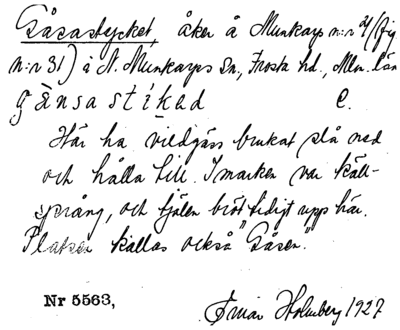 Gåsastycket, åker å Munkarps n:r 4/(fig
n:r 31) i N. Munkarps sn, Frosta hd., Mlm. län
gå̀nsastíkeđ e.
Här ha vildgäss brukat slå ned
och hålla till. I marken var käll-
språng, och tjälen bröt tidigt upp här.
Platsen kallas också "Gåsen".
Nr 5563,
Holmberg 1927